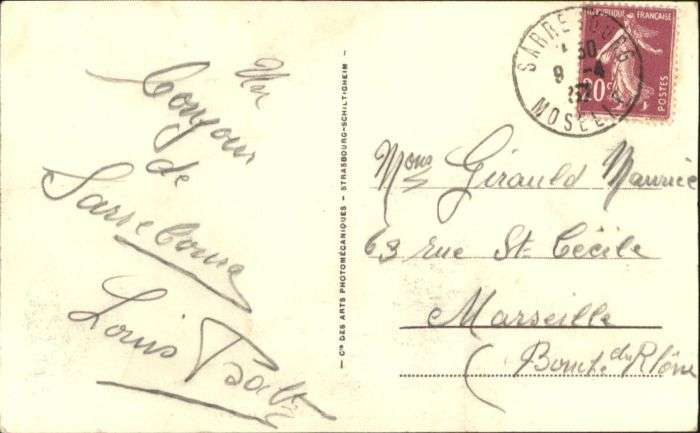 Un
bonjour
de
Sarrebourg
Louis
Cie DES ARTS PHOTOMÉCANIQUES - STRASBOURG-SCHILTIGHEIM -
RÉPUBLIQUE FRANÇAISE
20c
POSTES
SARREBOURG
30
9-4
32
MOSELLE
Mons Girauld Maurice
63 rue St Cécile
Marseille
(Bouch. du Rhône